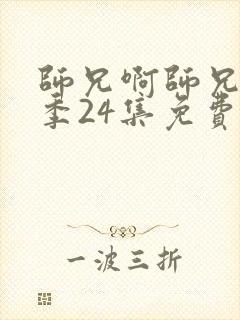 師兄啊師兄
季24集免費
一波三折